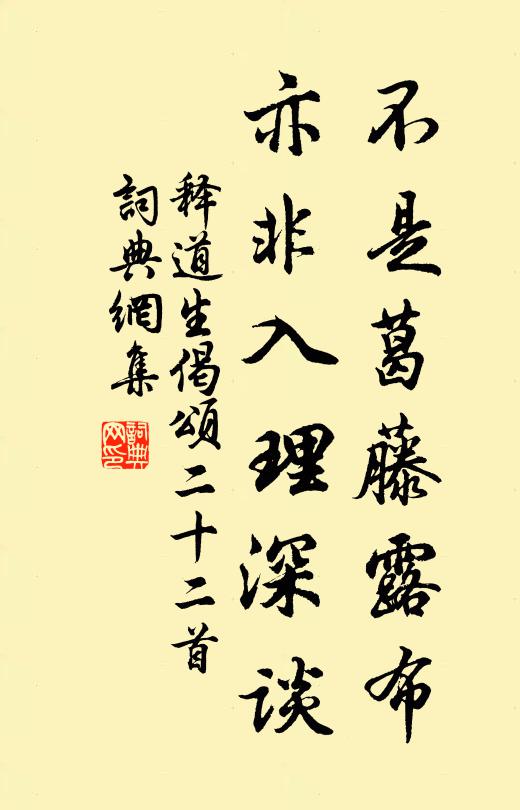 不是葛藤露布
亦非入理深谈
释道生偈颂二十二首
詞典網集
詞典
网印